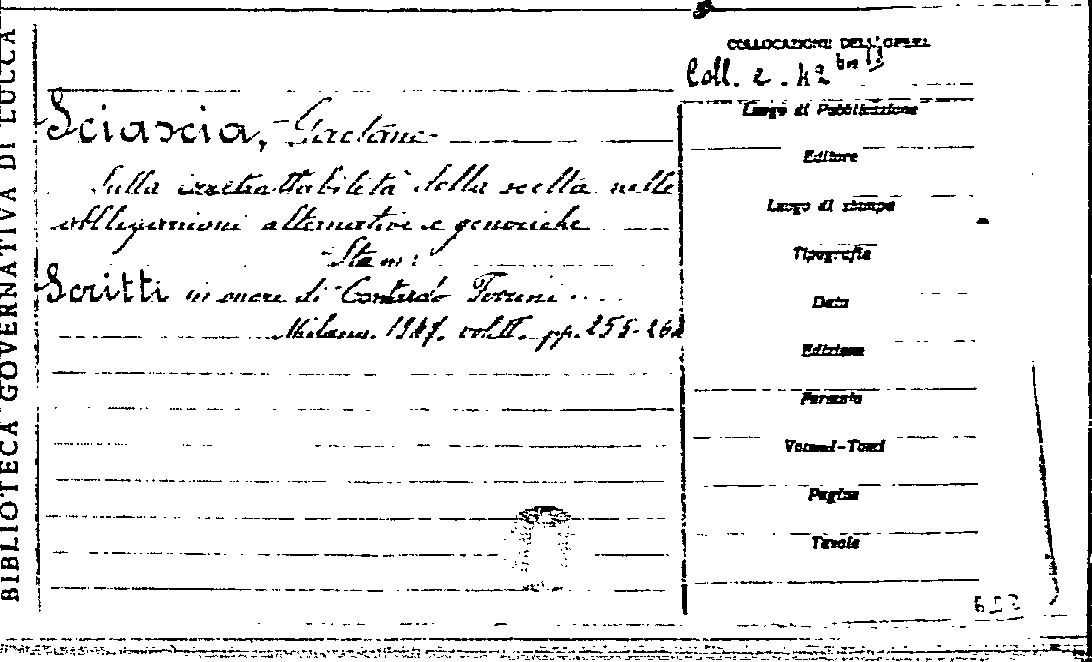 BIBLIOTECA GOVERNATIVA DI LUCCA
COLLOCAZIONE DELL'OPERA
Coll. 2. 42
Sciascia, Gaetano
Sulla irretrattabilità della scelta nelle
obbligazioni alternative e generiche
Sta in:
Scritti in onore di Contardo Ferrini...
Milano. 1947. vol. II. pp. 255-262
Luogo di Pubblicazione
Editore
Luogo di stampa
Tipografia
Data
Edizione
Formato
Volumi-Tomi
Pagine
Tavole